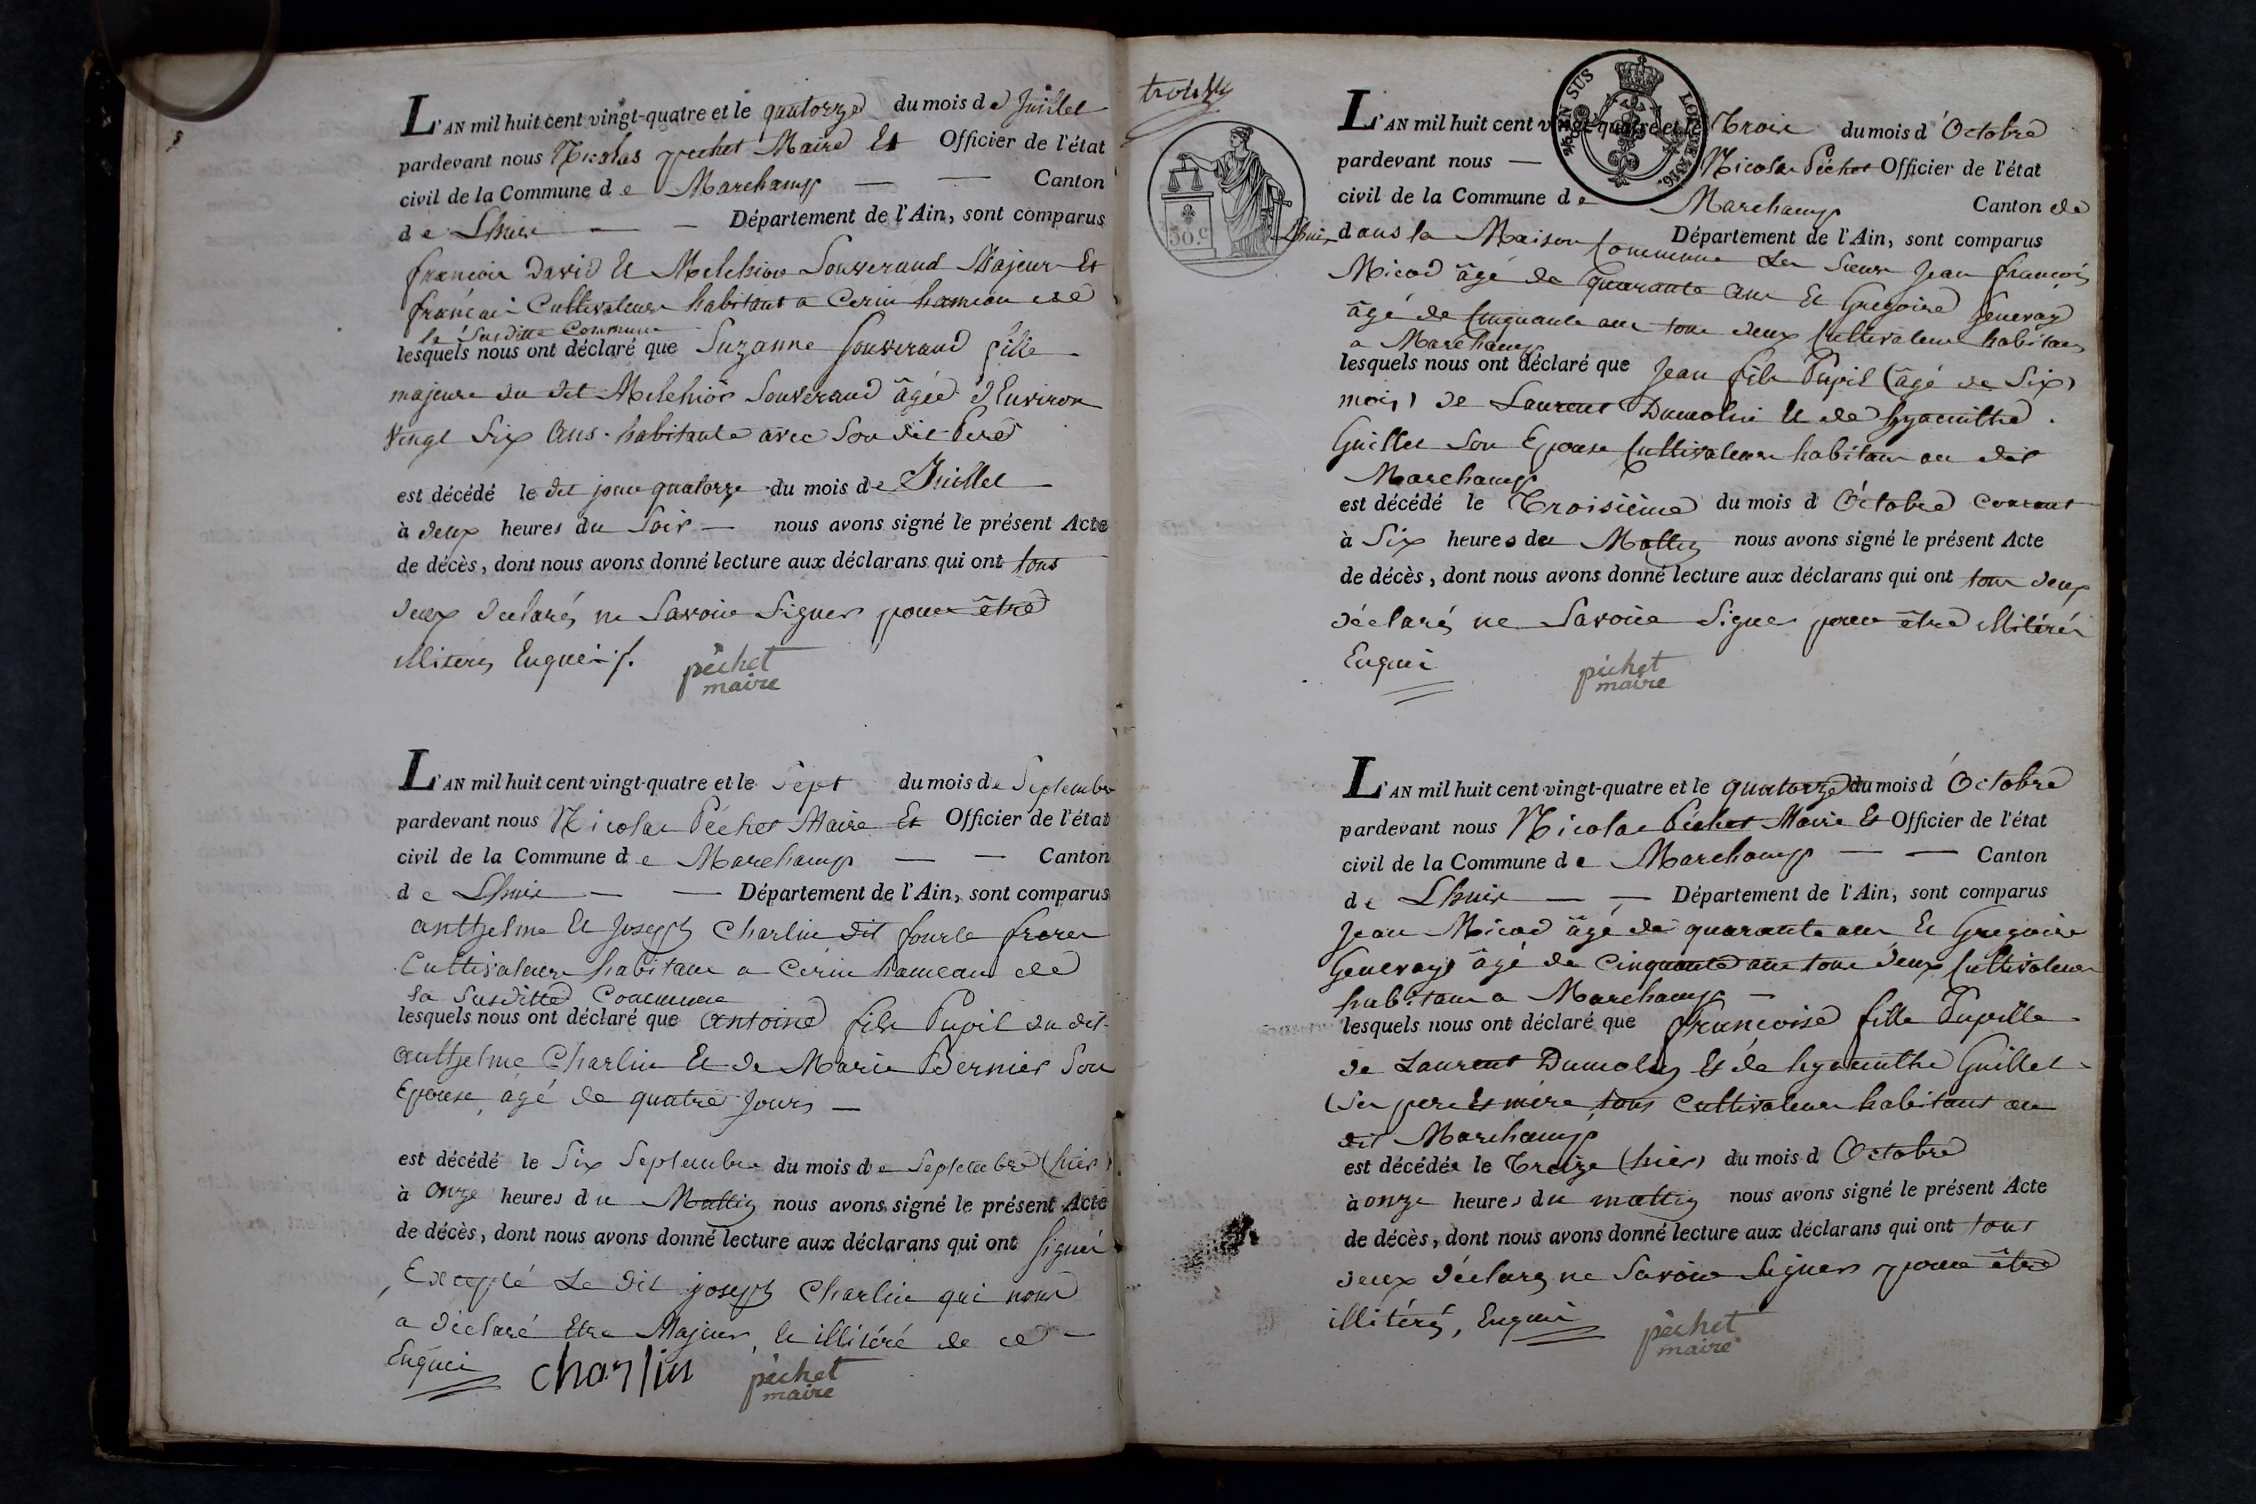 L'AN mil huit cent vingt-quatre et le quatorze du mois de Juillet
pardevant nous Nicolas pechet Maire Et Officier de l'état
civil de la Commune de Marchamp — — Canton
de Lhuis — — Département de l'Ain, sont comparus
françois David Et Melchior Souverand Majeur Et
françois Cultivateurs habitant a Cerin hameau de
la Susditte Commune
lesquels nous ont déclaré que Suzanne Souverand fille
majeure du dit Melchior Souverand âgée d'Environ
Vingt Six Ans habitante avec Son dit Pere
est décédé le dit jour quatorze du mois de Juillet
à deux heures du Soir — nous avons signé le présent Acte
de décès, dont nous avons donné lecture aux déclarans qui ont tous
deux declarés ne Savoir Signer pour être
illiterés Enquis
pèchet
maire
L'AN mil huit cent vingt-quatre et le Sept du mois de Septembre
pardevant nous Nicolas Péchet Maire Et Officier de l'état
civil de la Commune de Marchamp — — Canton
de Lhuis — — Département de l'Ain, sont comparus
anthelme Et Joseph Charlin dit fourle freres
Cultivateurs habitans a Cerin hameau de
la Susditte Commune
lesquels nous ont déclaré que antoine fils Pupil du dit
anthelme Charlin Et de Marie Bernier Son
Epouse, agé de quatre Jours —
est décédé le Six Septembre du mois de Septembre (hier)
à onze heures du Mattin nous avons signé le présent Acte
de décès, dont nous avons donné lecture aux déclarans qui ont Signé
Excepté Le dit joseph Charlin qui nous
a déclaré Etre Majeur, Et illitéré de ce
Enquis charlin pèchet
maire
troisx
30.c
TIMBRE SUS
LOI DE 1816.
L'AN mil huit cent vingt-quatre et le Trois du mois d'Octobre
pardevant nous — Nicolas Péchet Officier de l'état
civil de la Commune de Marchamp Canton de
Lhuis dans la Maison Commune Département de l'Ain, sont comparus
Les Sieurs Jean françois
Micod âgé de quarante ans Et Gregoire Genevay
âgé de Cinquante ans tous deux Cultivateurs habitans
a Marchamp
lesquels nous ont déclaré que Jean fils Pupil (âgé de Six
mois) de Laurent Dumolin Et de hyacinthe
Guillet Son Epouse Cultivateurs habitans au dit
Marchamp
est décédé le Troisième du mois d'Octobre courant
à Six heures du Mattin nous avons signé le présent Acte
de décès, dont nous avons donné lecture aux déclarans qui ont tous deux
déclarés ne Savoir Signer pour être illitérés
Enquis
pèchet
maire
L'AN mil huit cent vingt-quatre et le quatorze du mois d'Octobre
pardevant nous Nicolas Péchet Maire Et Officier de l'état
civil de la Commune de Marchamp — — Canton
de Lhuis — — Département de l'Ain, sont comparus
Jean Micod âgé de quarante ans Et Gregoire
Genevay âgé de Cinquante ans tous deux Cultivateurs
habitans a Marchamp —
lesquels nous ont déclaré que françoise fille Pupille
de Laurent Dumolin Et de hyacinthe Guillet
Ses pere Et mère tous Cultivateurs habitans au
dit Marchamp
est décédée le Treize (hier) du mois d'Octobre
à onze heures du mattin nous avons signé le présent Acte
de décès, dont nous avons donné lecture aux déclarans qui ont tous
deux déclarés ne Savoir Signer pour être
illitérés, Enquis
pèchet
maire